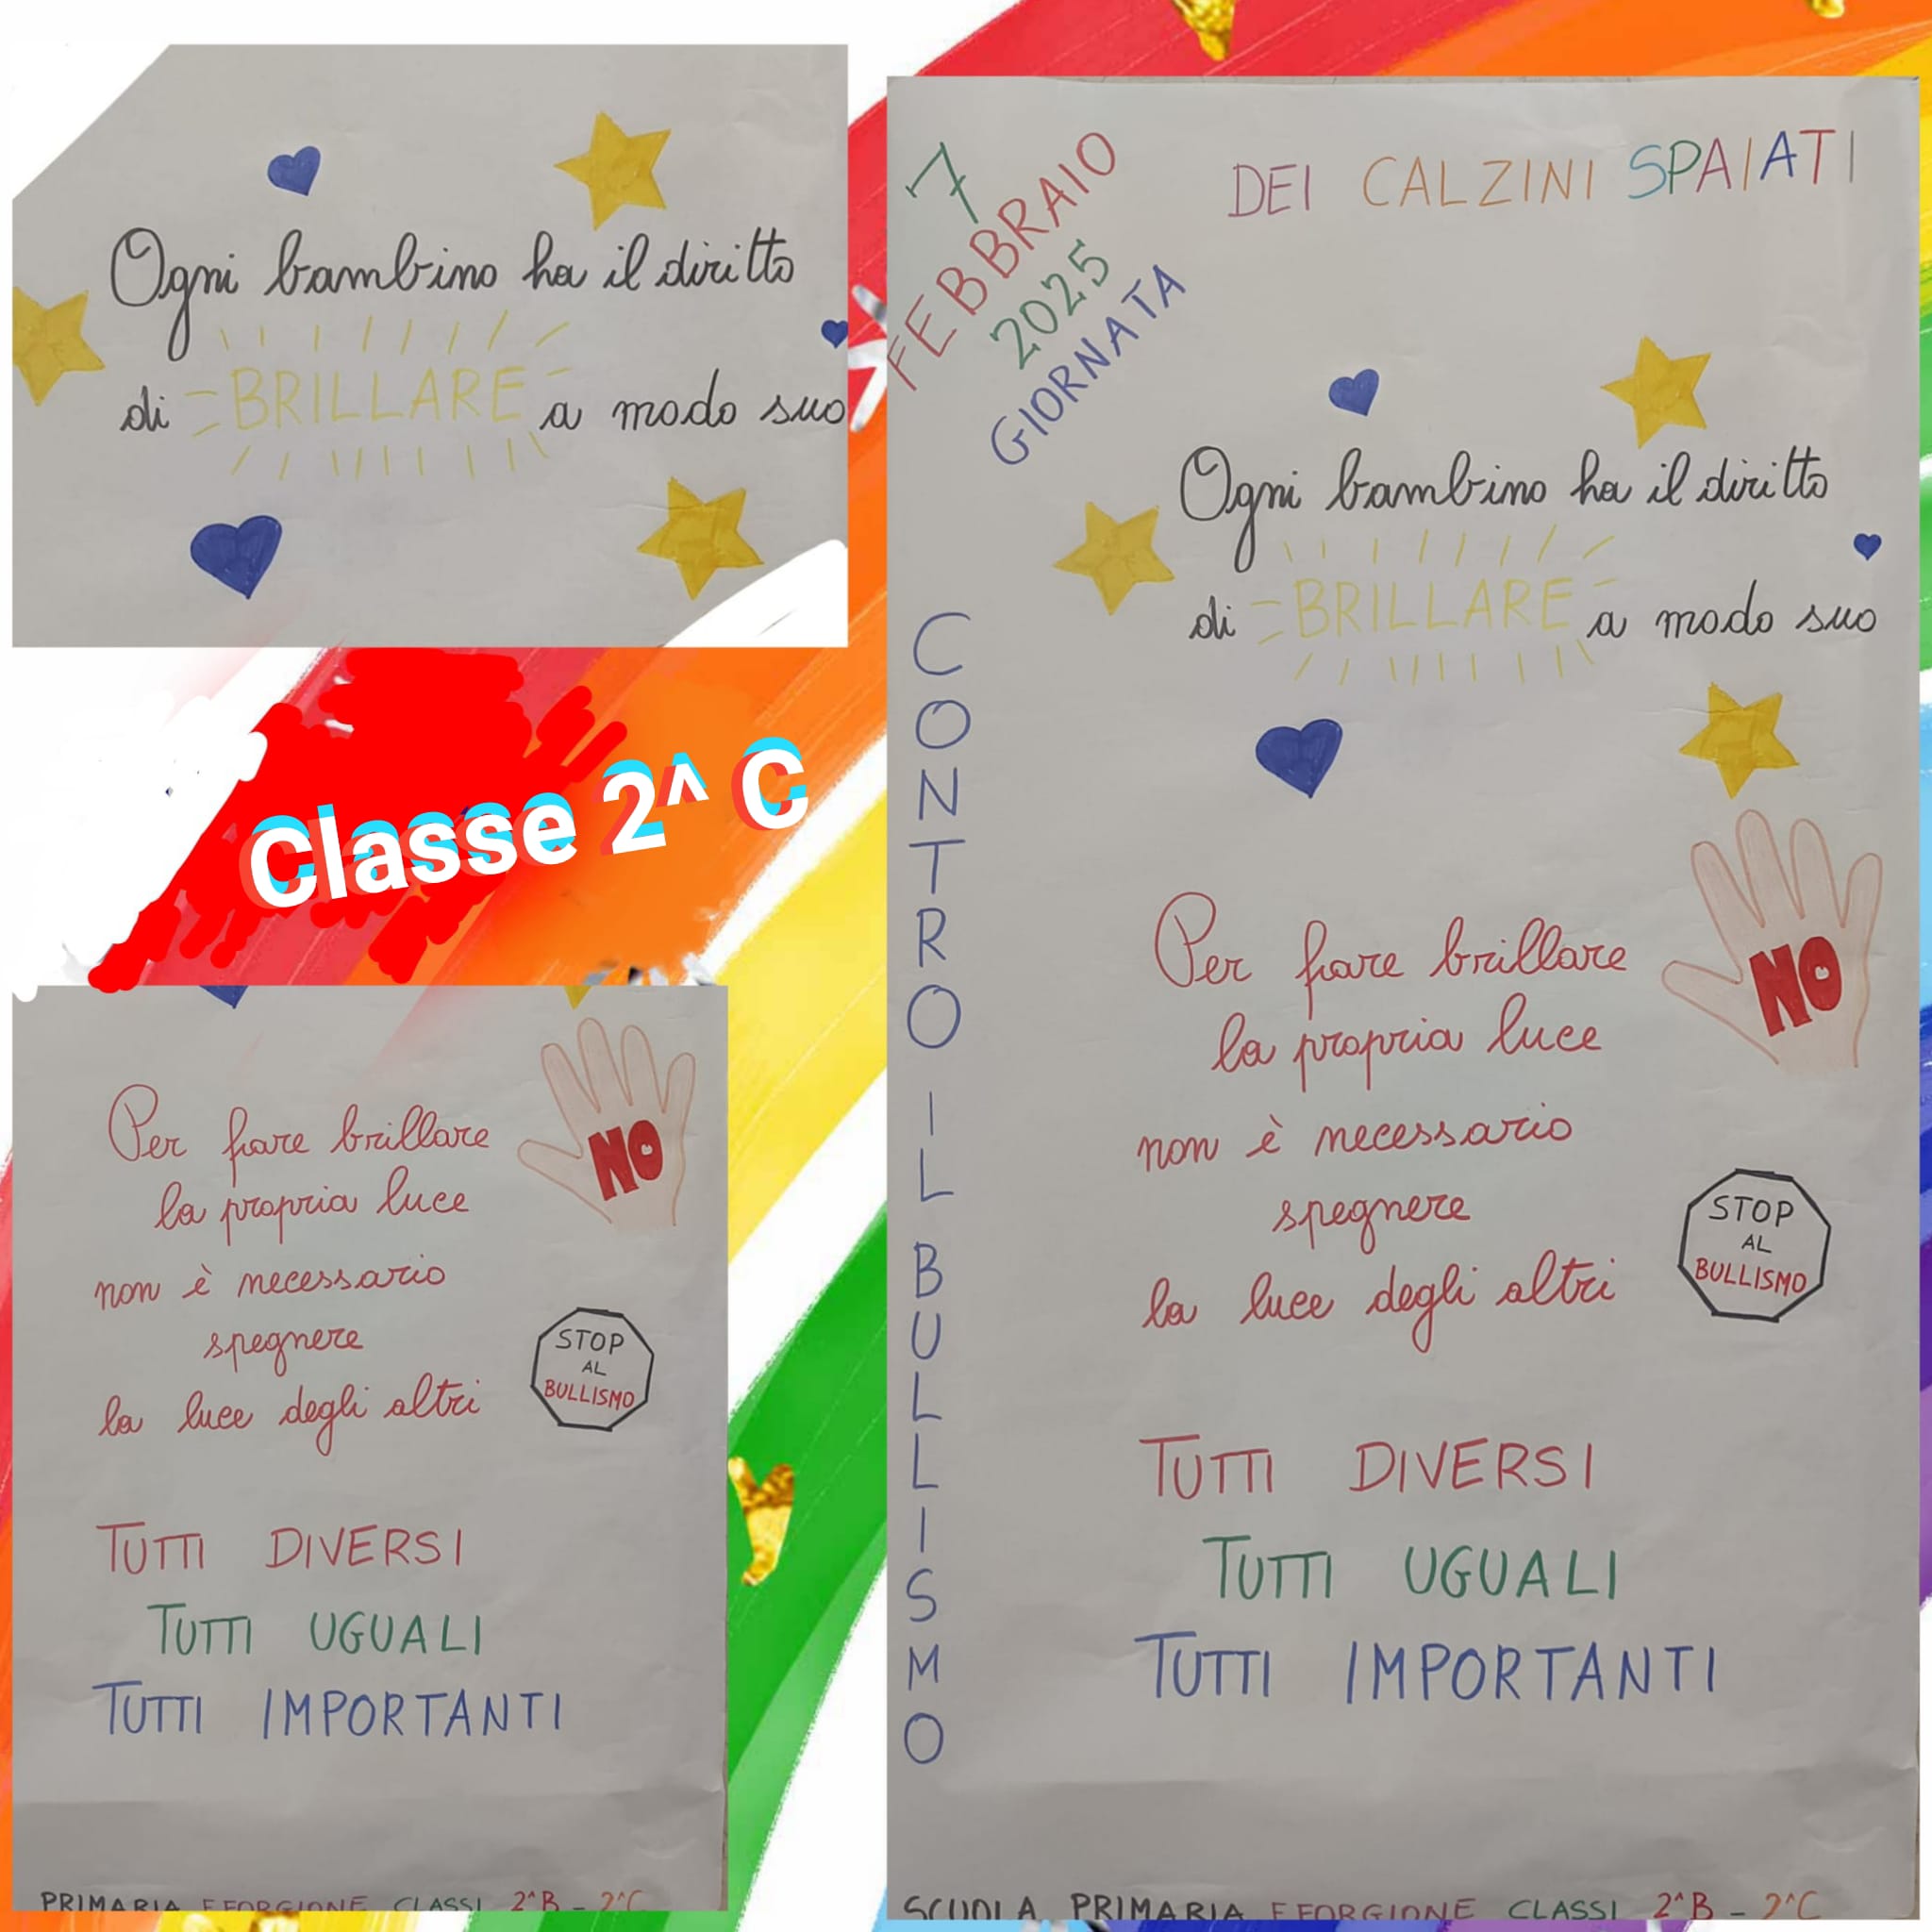 Ogni bambino ha il diritto
di BRILLARE a modo suo
Classe 2^ C
Per fare brillare
la propria luce
non è necessario
spegnere
la luce degli altri
NO
STOP
AL
BULLISMO
TUTTI DIVERSI
TUTTI UGUALI
TUTTI IMPORTANTI
PRIMARIA F FORGIONE CLASSI 2^B - 2^C
7
FEBBRAIO
2025
GIORNATA
DEI CALZINI SPAIATI
CONTRO IL BULLISMO
Ogni bambino ha il diritto
di BRILLARE a modo suo
Per fare brillare
la propria luce
non è necessario
spegnere
la luce degli altri
NO
STOP
AL
BULLISMO
TUTTI DIVERSI
TUTTI UGUALI
TUTTI IMPORTANTI
SCUOLA PRIMARIA F FORGIONE CLASSI 2^B - 2^C